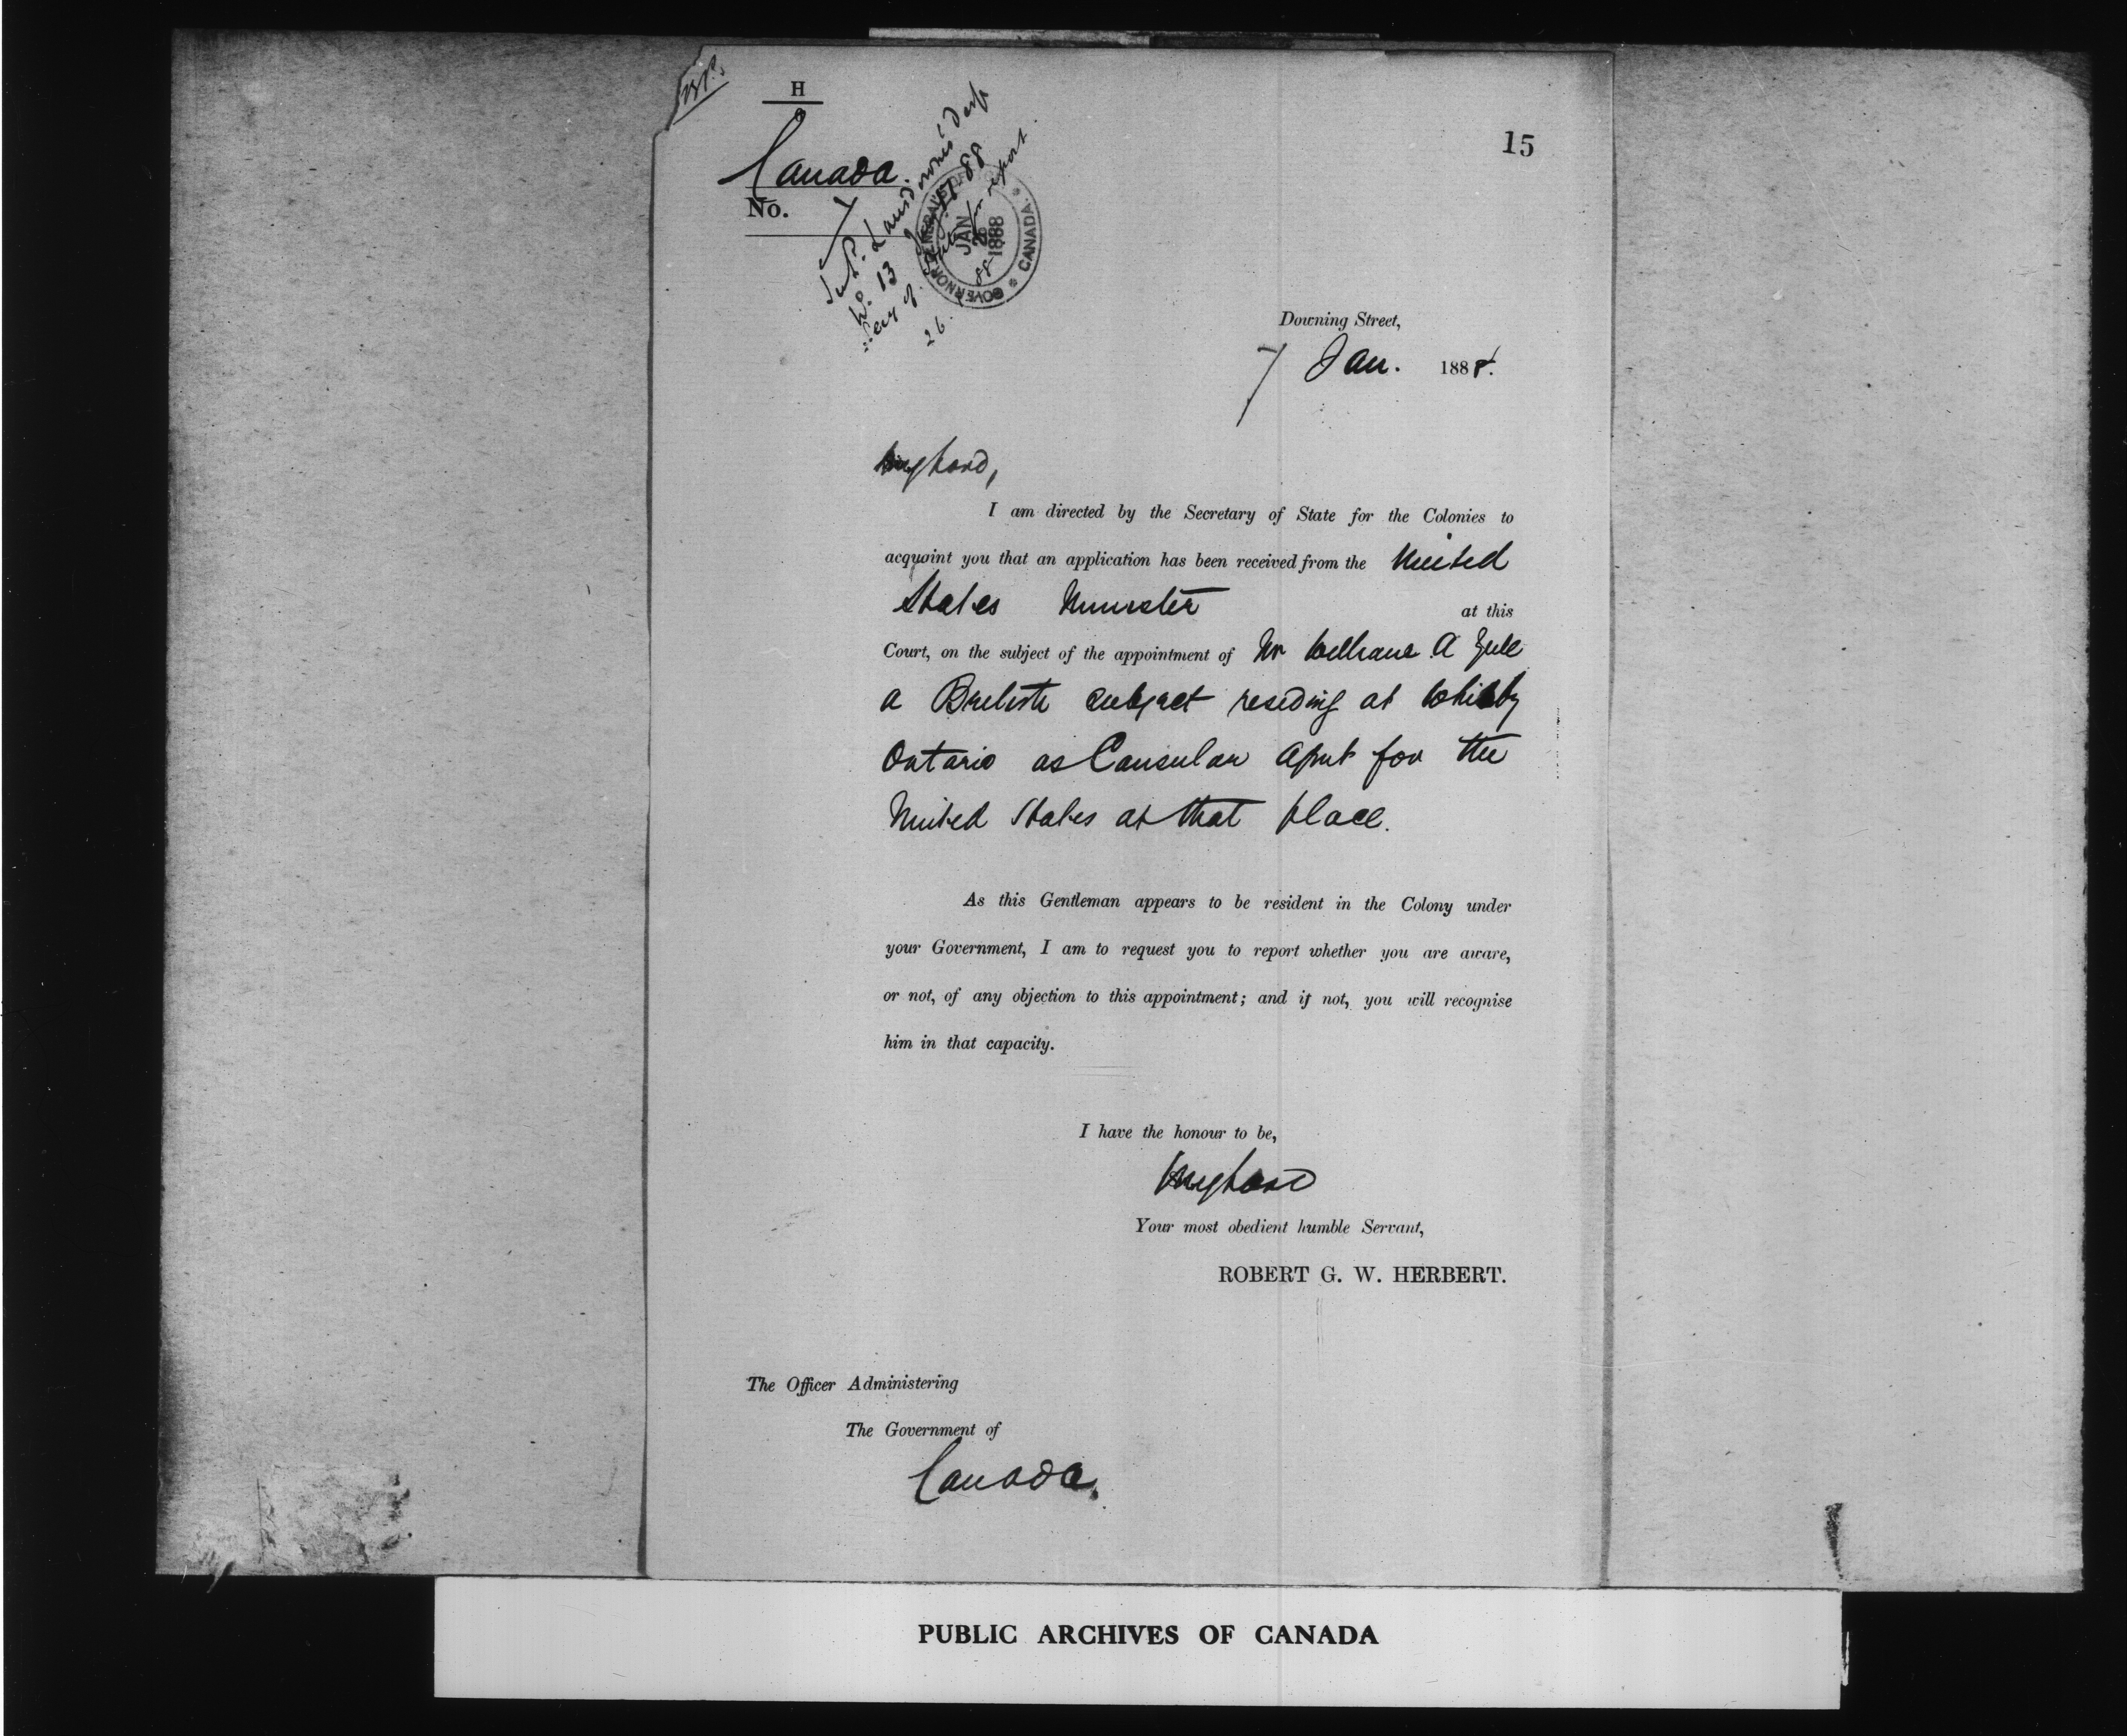 H
Canada.
No. 7
Lansdowne's Desp
No. 13
for report.
26
88
GOVERNOR GENERAL'S OFFICE
JAN
26
1888
CANADA.
15
Downing Street,
7 Jan. 1888.
My Lord,
I am directed by the Secretary of State for the Colonies to
acquaint you that an application has been received from the United
States Minister at this
Court, on the subject of the appointment of Mr William A Yule
a British subject residing at Whitby
Ontario as Consular Agent for the
United States at that place.
As this Gentleman appears to be resident in the Colony under
your Government, I am to request you to report whether you are aware,
or not, of any objection to this appointment; and if not, you will recognise
him in that capacity.
I have the honour to be,
My Lord
Your most obedient humble Servant,
ROBERT G. W. HERBERT.
The Officer Administering
The Government of
Canada.
PUBLIC ARCHIVES OF CANADA